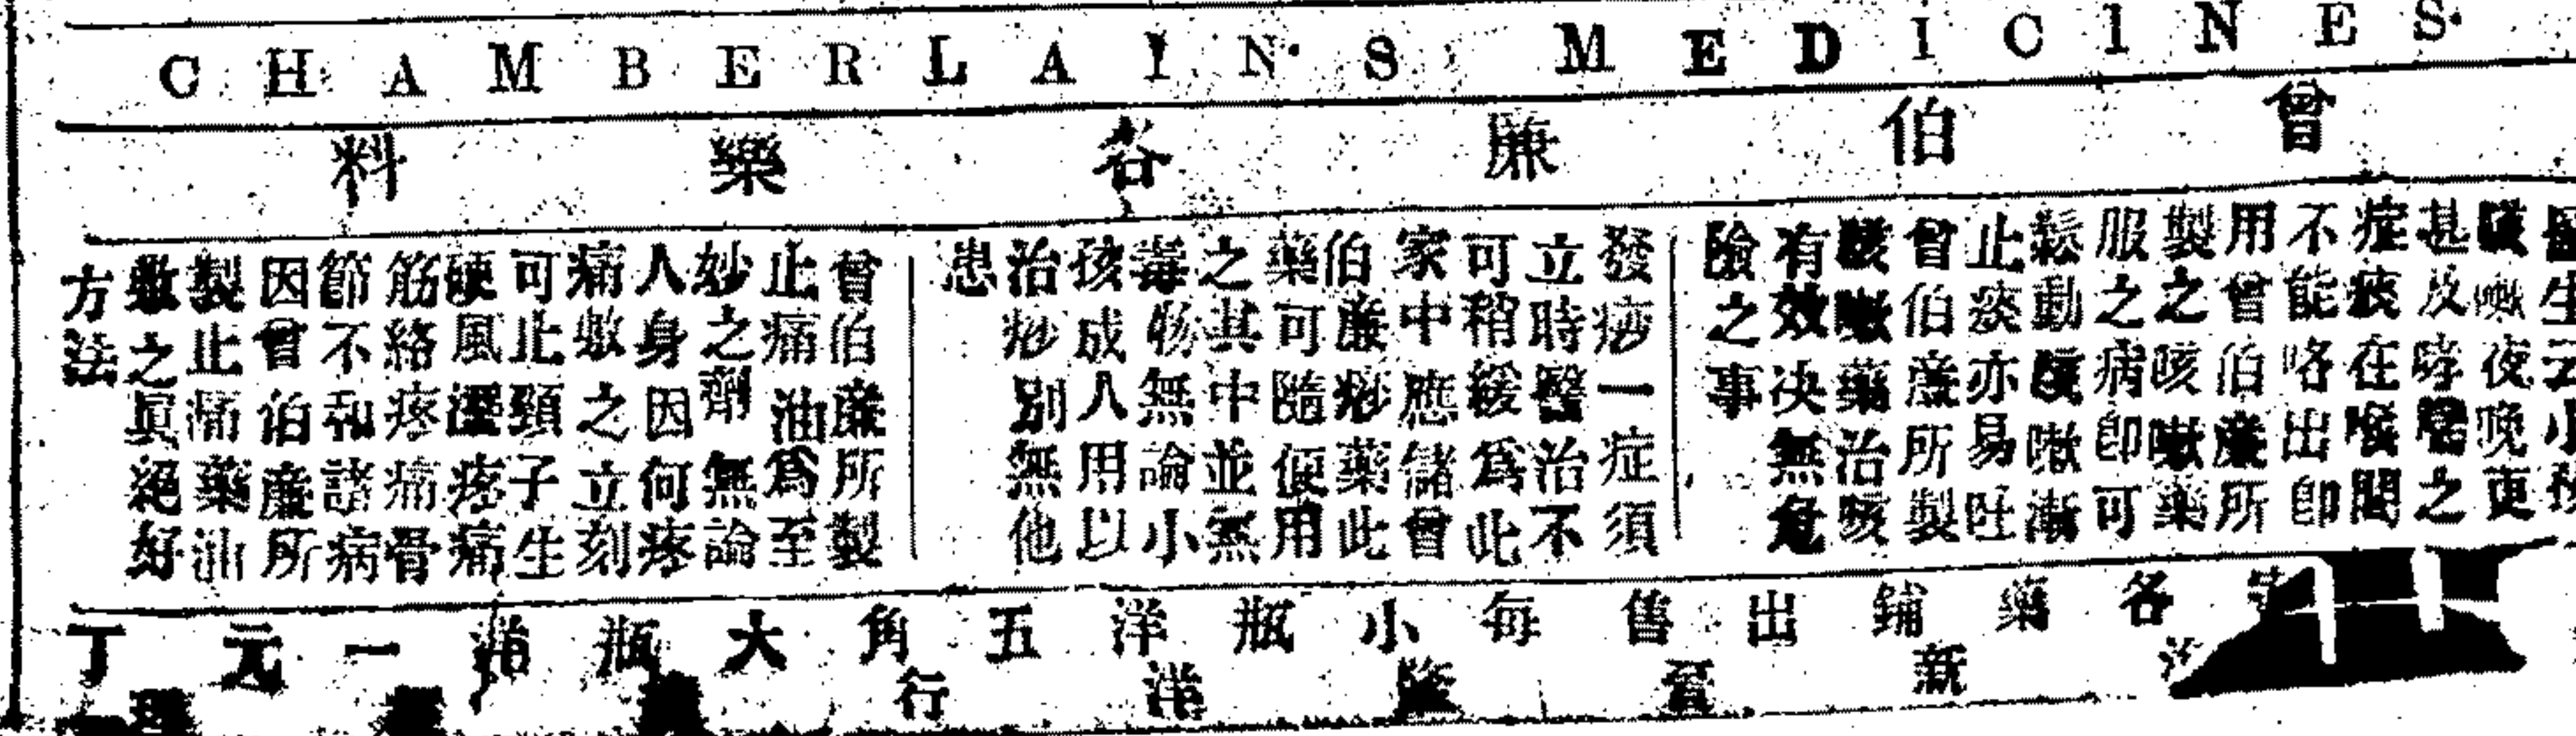 CHAMBERLAIN'S MEDICINES.
曾伯廉各藥料
醫生云小孩
咳嗽夜晚更
甚及哮喘之
症痰在喉間
不能咯出即
用曾伯廉所
製之咳嗽藥
服之病即可
鬆動咳嗽漸
止痰亦易吐
曾伯廉所製
咳嗽藥治咳
有效决無危
險之事
發痧一症須
立時醫治不
可稍緩爲此
家中應儲曾
伯廉痧藥此
藥可隨便用
之其中並無
毒物無論小
孩成人用以
治痧別無他
患
曾伯廉所製
止痛油爲至
妙之劑無論
人身因何疼
痛敷之立刻
可止頸子生
硬風濕疼痛
筋絡疼痛骨
節不和諸病
因曾伯廉所
製止痛藥油
敷之眞絕好
方法
各藥鋪出售每小瓶洋五角大瓶洋一元丁
新晉隆洋行